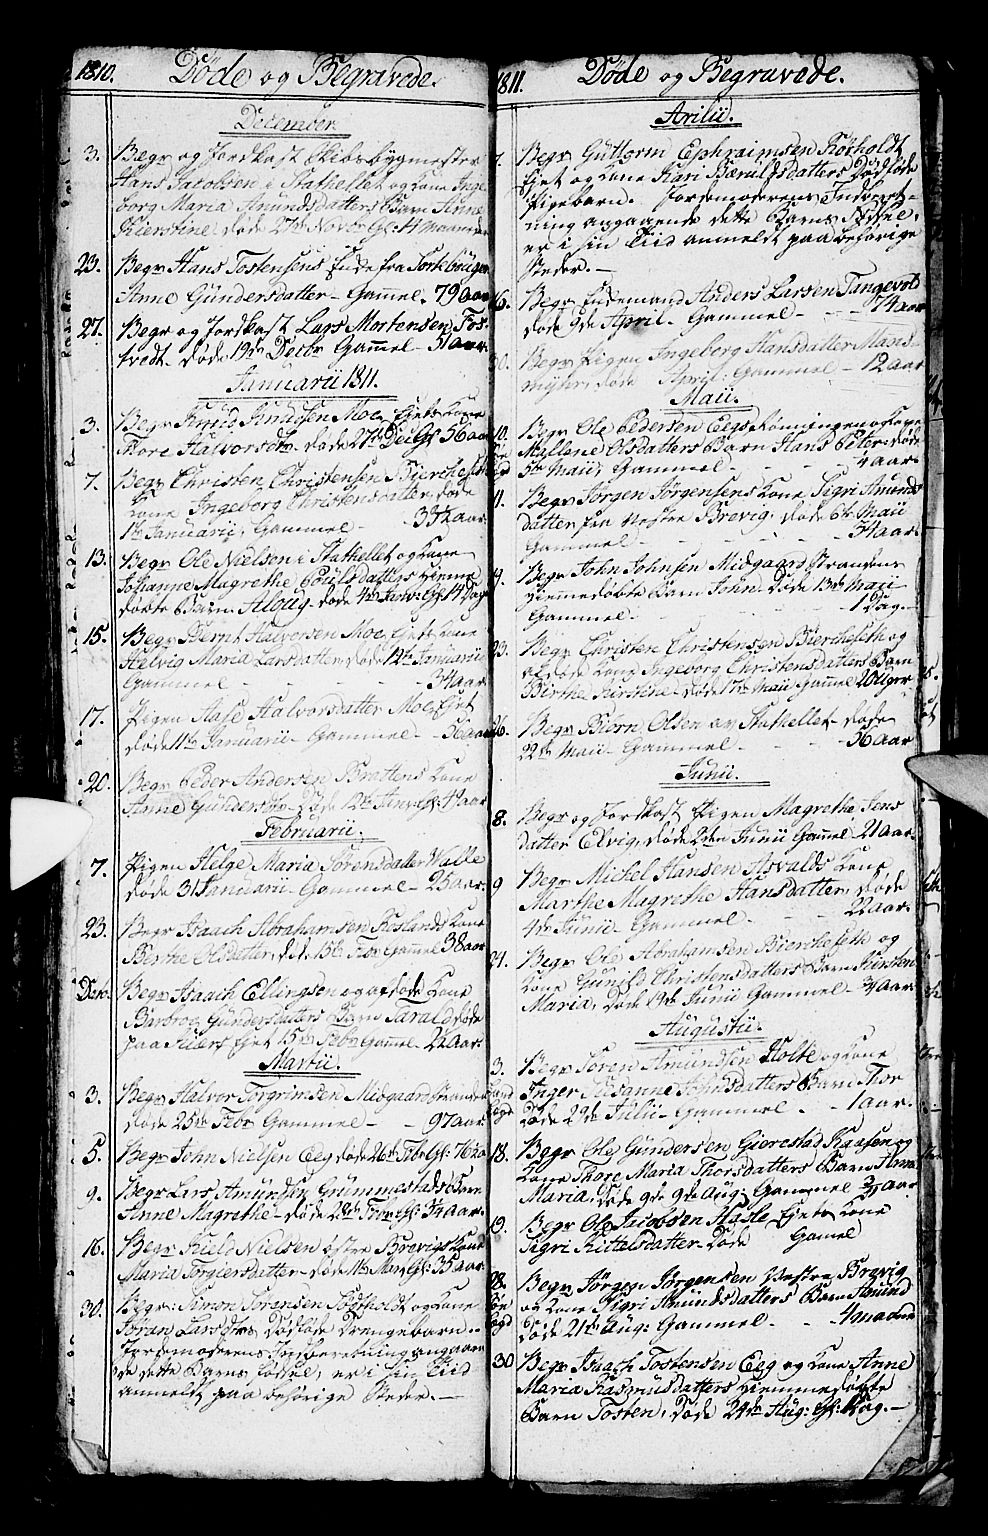 1810. Døde og Begravede.
December.
3. Begr og Jordkast Skibsbygmester
Hans Jacobsen i Stathellet og Kone Inge
borg Maria Amundsdatters Barn Anne
Kierstine, døde 27de Novbr Gl: 4 Maaneder
23. Begr Hans Tostensens Enke fra
Anne Gündersdatter - Gamel. 79 Aar
27. Begr og Jordkast Lars Mortensen Tos
tvedt. døde 19de Decbr Gamel - 51 aar.
Januarii 1811.
3. Begr Knud Knudsen Moe, Eiets Kone
Thore Halvorsdtr. døde 27de Dec Gl 56 aar
7. Begr Christen Christensen Bierchesæth
Kone Ingeborg Christensdatter, døde
1te Januarii, Gammel - aar.
13. Begr Ole Nielsen i Stathellet og Kone
Johanne Magrethe Poulsdatters hjemme
døbte Barn Aloug. døde 4de Janv: Gl: 14 Dage
15. Begr Bernt Halvorsen Moe, Eiets Kone
Helvig Maria Larsdatter, døde 12te Januarii
Gammel - - - - - 34 aar
17. Pigen Aase Halvorsdatter Moe, Eiet
døde 11te Januarii - Gammel - 56 aar
20. Begr Peder Andersen Brattens Kone
Anne Gündersdtr. Døde 12te Janv: Gl: 49 aar
Februarii.
7. Pigen Helge Maria Sørensdatter Valle
døde 31 Januarii - Gammel - 25 aar.
23. Begr Isaach Abrahamsen Røslands Kone
Berthe Olsdatter, døde 15de Febr Gammel 38 aar
Dito. Begr Isaach Ellingsen og afdøde Kone
Barbroe Gündersdatters Barn Tarald døde
paa Eiet 15de Febr Gamel - 22 Aar.
Martii.
3. Begr Halvor Torgrimsen Midgaard Stranden
døde 25de Febr Gammel - - 97 aar.
5. Begr John Nielsen Eeg døde 26de Febr Gl: 76 aar
9. Begr Lars Amundsen Grümmestads Barn
Anne Magrethe - døde 28de Febr Gl: aar.
16. Begr Kield Nielsen østre Brevigs Kone
Maria Torgiersdatter - døde 11te Mar Gl: 35 aar
30. Begr: Simon Sørensen og Kone
Søran Larsdtrs Dødføde Drengebarn.
Jordemoderens Indberetning angaaen
de dette Barns Fødsel, er i sin Tiid
anmeldt paa behørige Steder. -
1811. Døde og Begravede.
Arilii.
7. Begr Güttorm Ephraimsen Røsholdt
Eiet og Kone Kari Bærulsdatters Dødføde
Pigebarn. Jordemoderens Indberet-
ning angaaende dette Barns Fødsel,
er i sin Tiid anmeldt paa behørige
Steder. -
16. Begr Enkemand Anders Larsen Tangevold
døde 9de April - Gammel - - - 74 aar
30. Begr Pigen Ingeborg Hansdatter Mans-
myhr, døde April: Gammel - 12 aar
Maii.
10. Begr Ole Pedersen Eegs Kone
Mallene Olsdatters Barn Hans Peter døde
5te Maii, Gammel - - - 4 aar.
11. Begr Jørgen Jørgensens Kone Sigri Amunds
datter fra Vestre Brevig. døde 6te Maii
Gammel - - - - - 34 aar.
19. Begr John Johnsen Midgaard Strandens
hjemmedøbte Barn John. Døde 13de Maii
Gammel - - - - - 1 Dag. -
23. Begr Christen Christensen Bierchesæth og
afdøde Kone Ingeborg Christensdatters Barn
Birthe Kirstine - døde 17de Maii Gammel 20 Uger
26. Begr Biørn Olsen av Stathellet - døde
22de Maii - Gammel - - - 56 aar
Junii.
8. Begr og Jordkast Pigen Magrethe Jens
datter Elvig, døde 2den Junii Gammel 21 aar.
9 Begr Michel Hansen Asvalds Kone
Marthe Magrethe Hansdatter, døde
4de Junii - Gammel - - - 22 aar.
Begr Ole Abrahamsen Bierchesæth og
Kone Gunild Christensdatters Barn Kiersten
Maria, døde 19de Junii Gammel - aar.
Augustii.
3. Begr Søren Amundsen Holte og Kone
Inger Susanne Johnsdatters Barn Thor
Døde 29de Julii - Gammel - - 1 aar.
18. Begr Ole Gündersen Gierestad Kaasen og
Kone Thore Maria Thorsdatters Barn Anne
Maria, Døde 9de Aug: Gammel aar
19. Begr Ole Jacobsen Hasle, Eiets Kone
Sigri Kittelsdatter - Døde Gamel
28. Begr Jørgen Jørgensen Vestre Brevig
og Kone Sigri Amundsdatters Barn Amund
Døde 21de Aug: Gammel - - 4 maaned
30 Begr Isaach Tostensen Eeg og Kone Anne
Maria Rasmusdatters hjemmedøbte
Barn Tosten, Døde 24de Aug: Gl: Dag. -